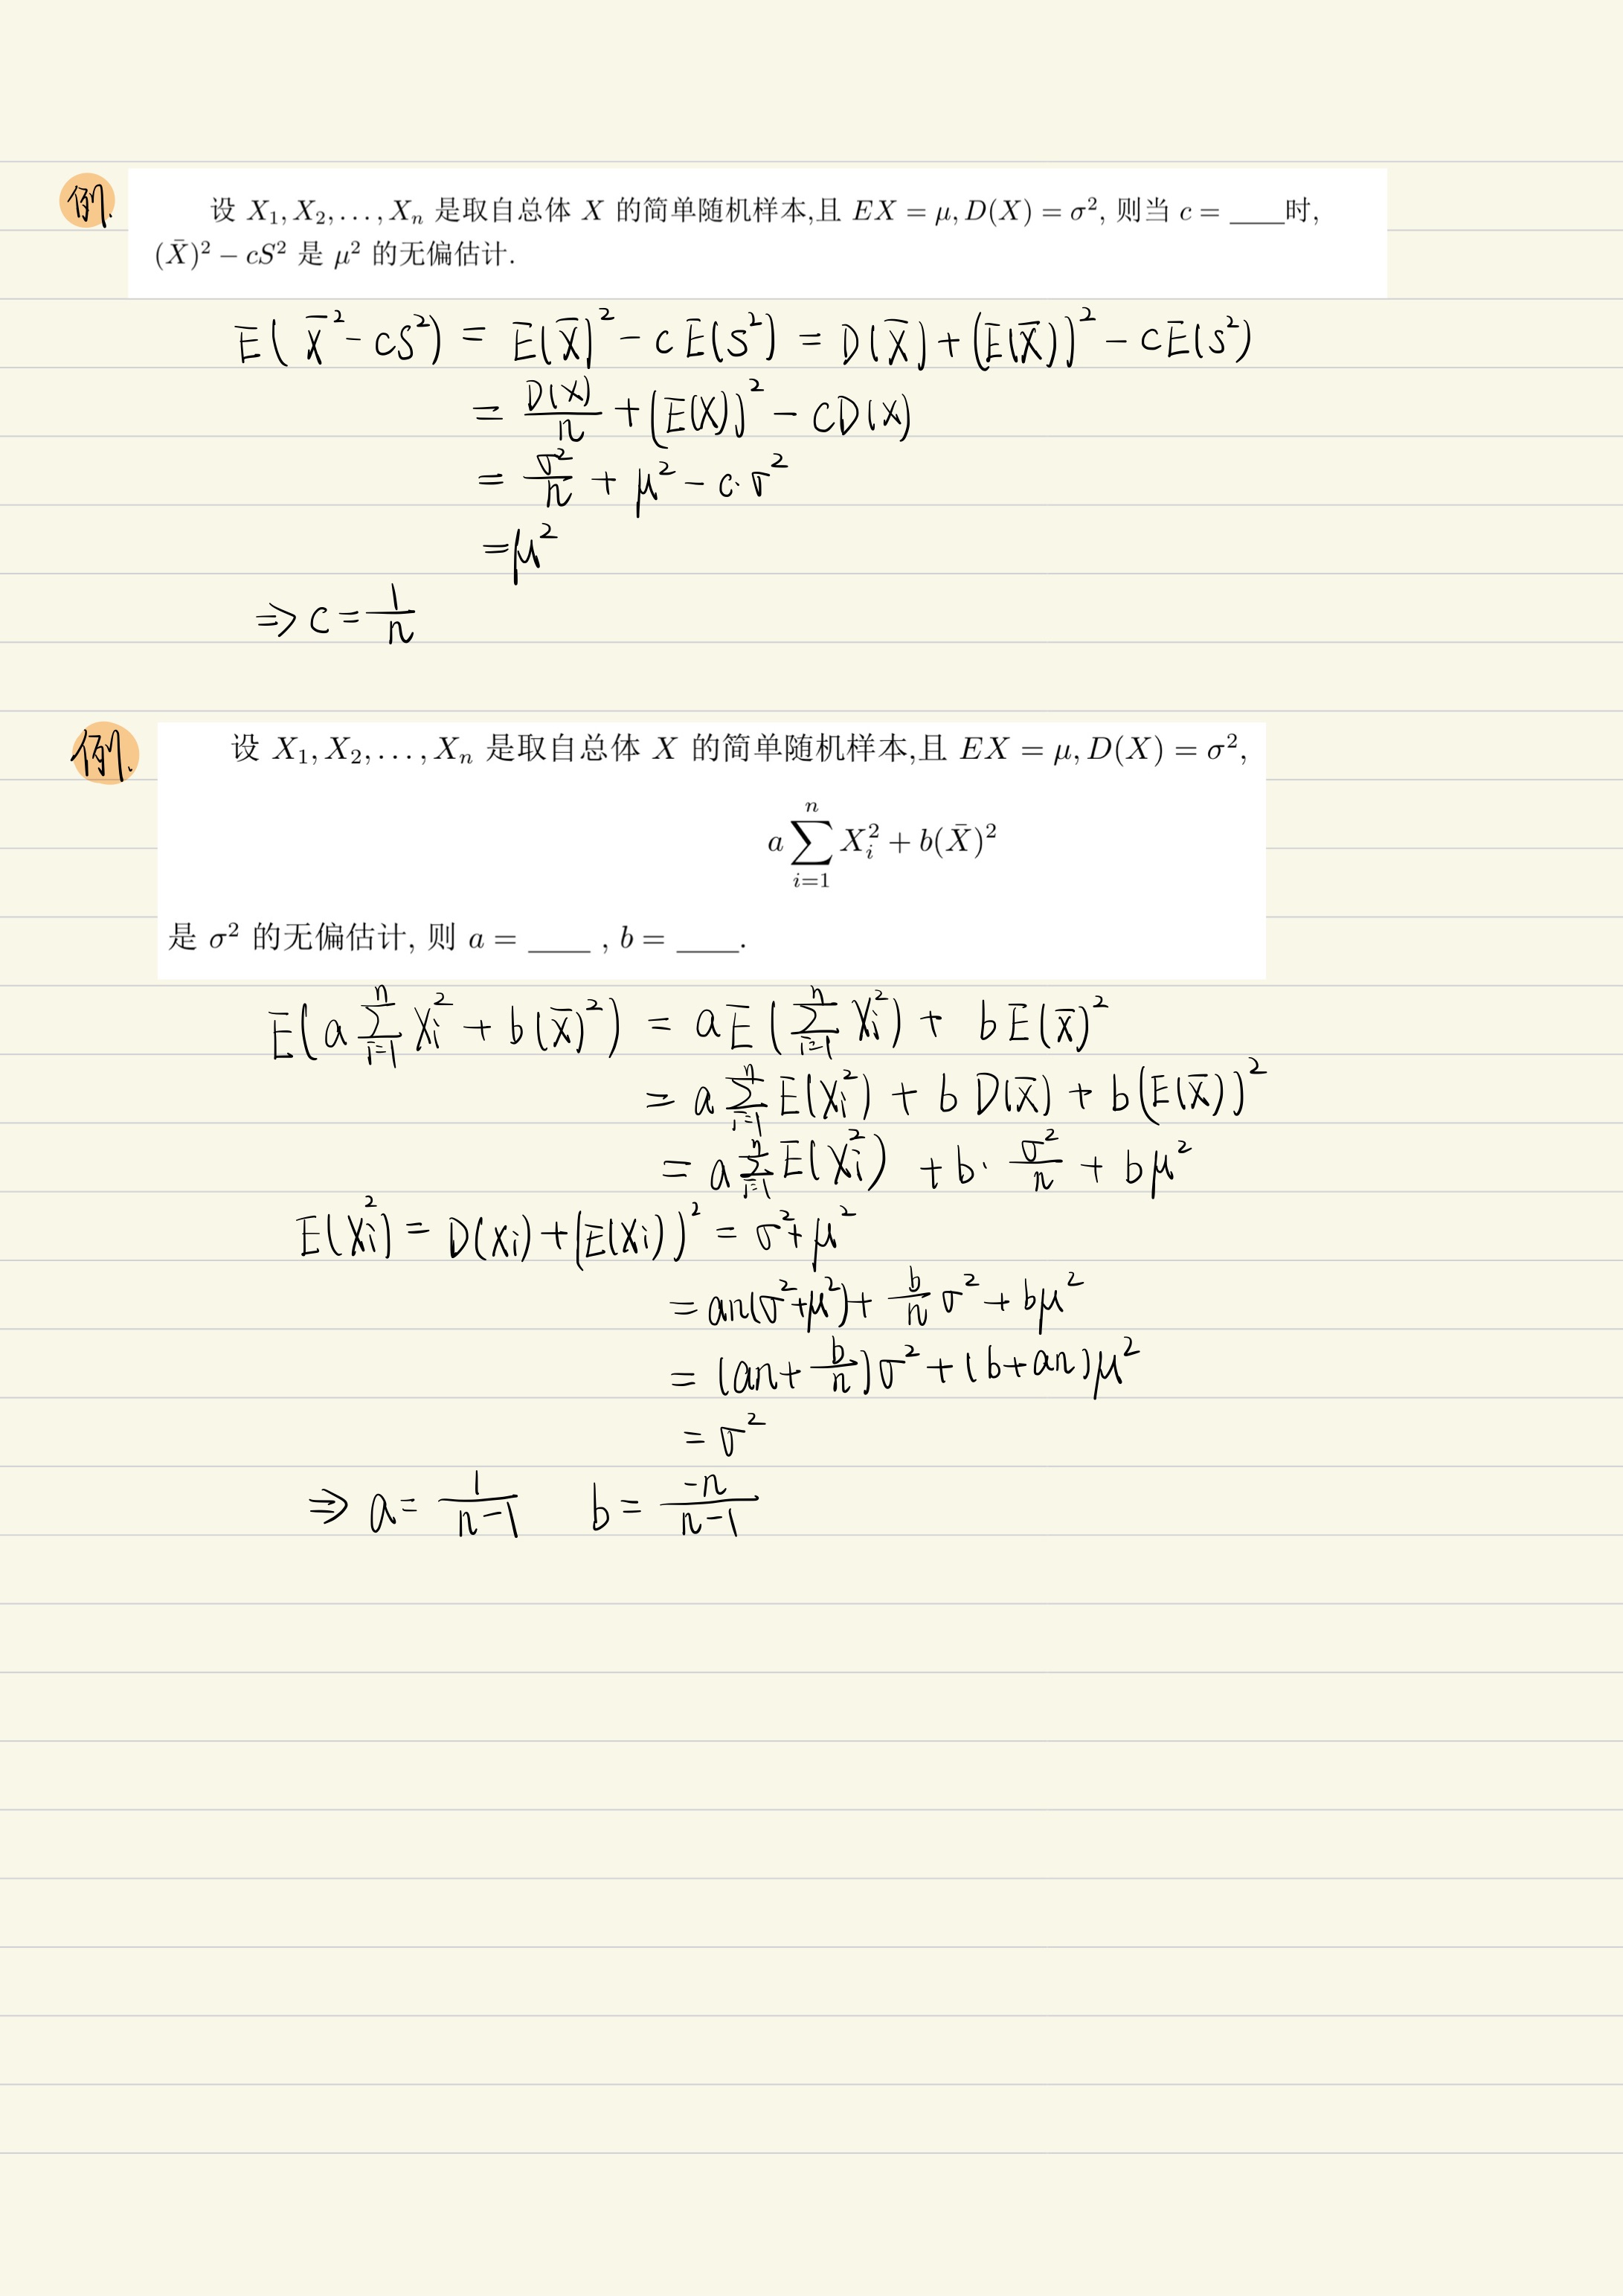 例.
设 X₁, X₂, . . . , Xₙ 是取自总体 X 的简单随机样本,且 EX = μ, D(X) = σ², 则当 c = ____时,
(X̄)² − cS² 是 μ² 的无偏估计.
E(X̄² − cS²) = E(X̄)² − cE(S²) = D(X̄) + (E(X̄))² − cE(S²)
= D(X)/n + (E(X))² − cD(X)
= σ²/n + μ² − c·σ²
= μ²
⇒ c = 1/n
例.
设 X₁, X₂, . . . , Xₙ 是取自总体 X 的简单随机样本,且 EX = μ, D(X) = σ²,
a ∑_{i=1}^{n} X_i² + b(X̄)²
是 σ² 的无偏估计, 则 a = ____ , b = ____.
E(a ∑_{i=1}^{n} X_i² + b(X̄)²) = aE(∑_{i=1}^{n} X_i²) + bE(X̄)²
= a ∑_{i=1}^{n} E(X_i²) + bD(X̄) + b(E(X̄))²
= a ∑_{i=1}^{n} E(X_i²) + b· σ²/n + bμ²
E(X_i²) = D(X_i) + (E(X_i))² = σ² + μ²
= an(σ² + μ²) + b/n σ² + bμ²
= (an + b/n)σ² + (b + an)μ²
= σ²
⇒ a = 1/(n−1) b = −n/(n−1)